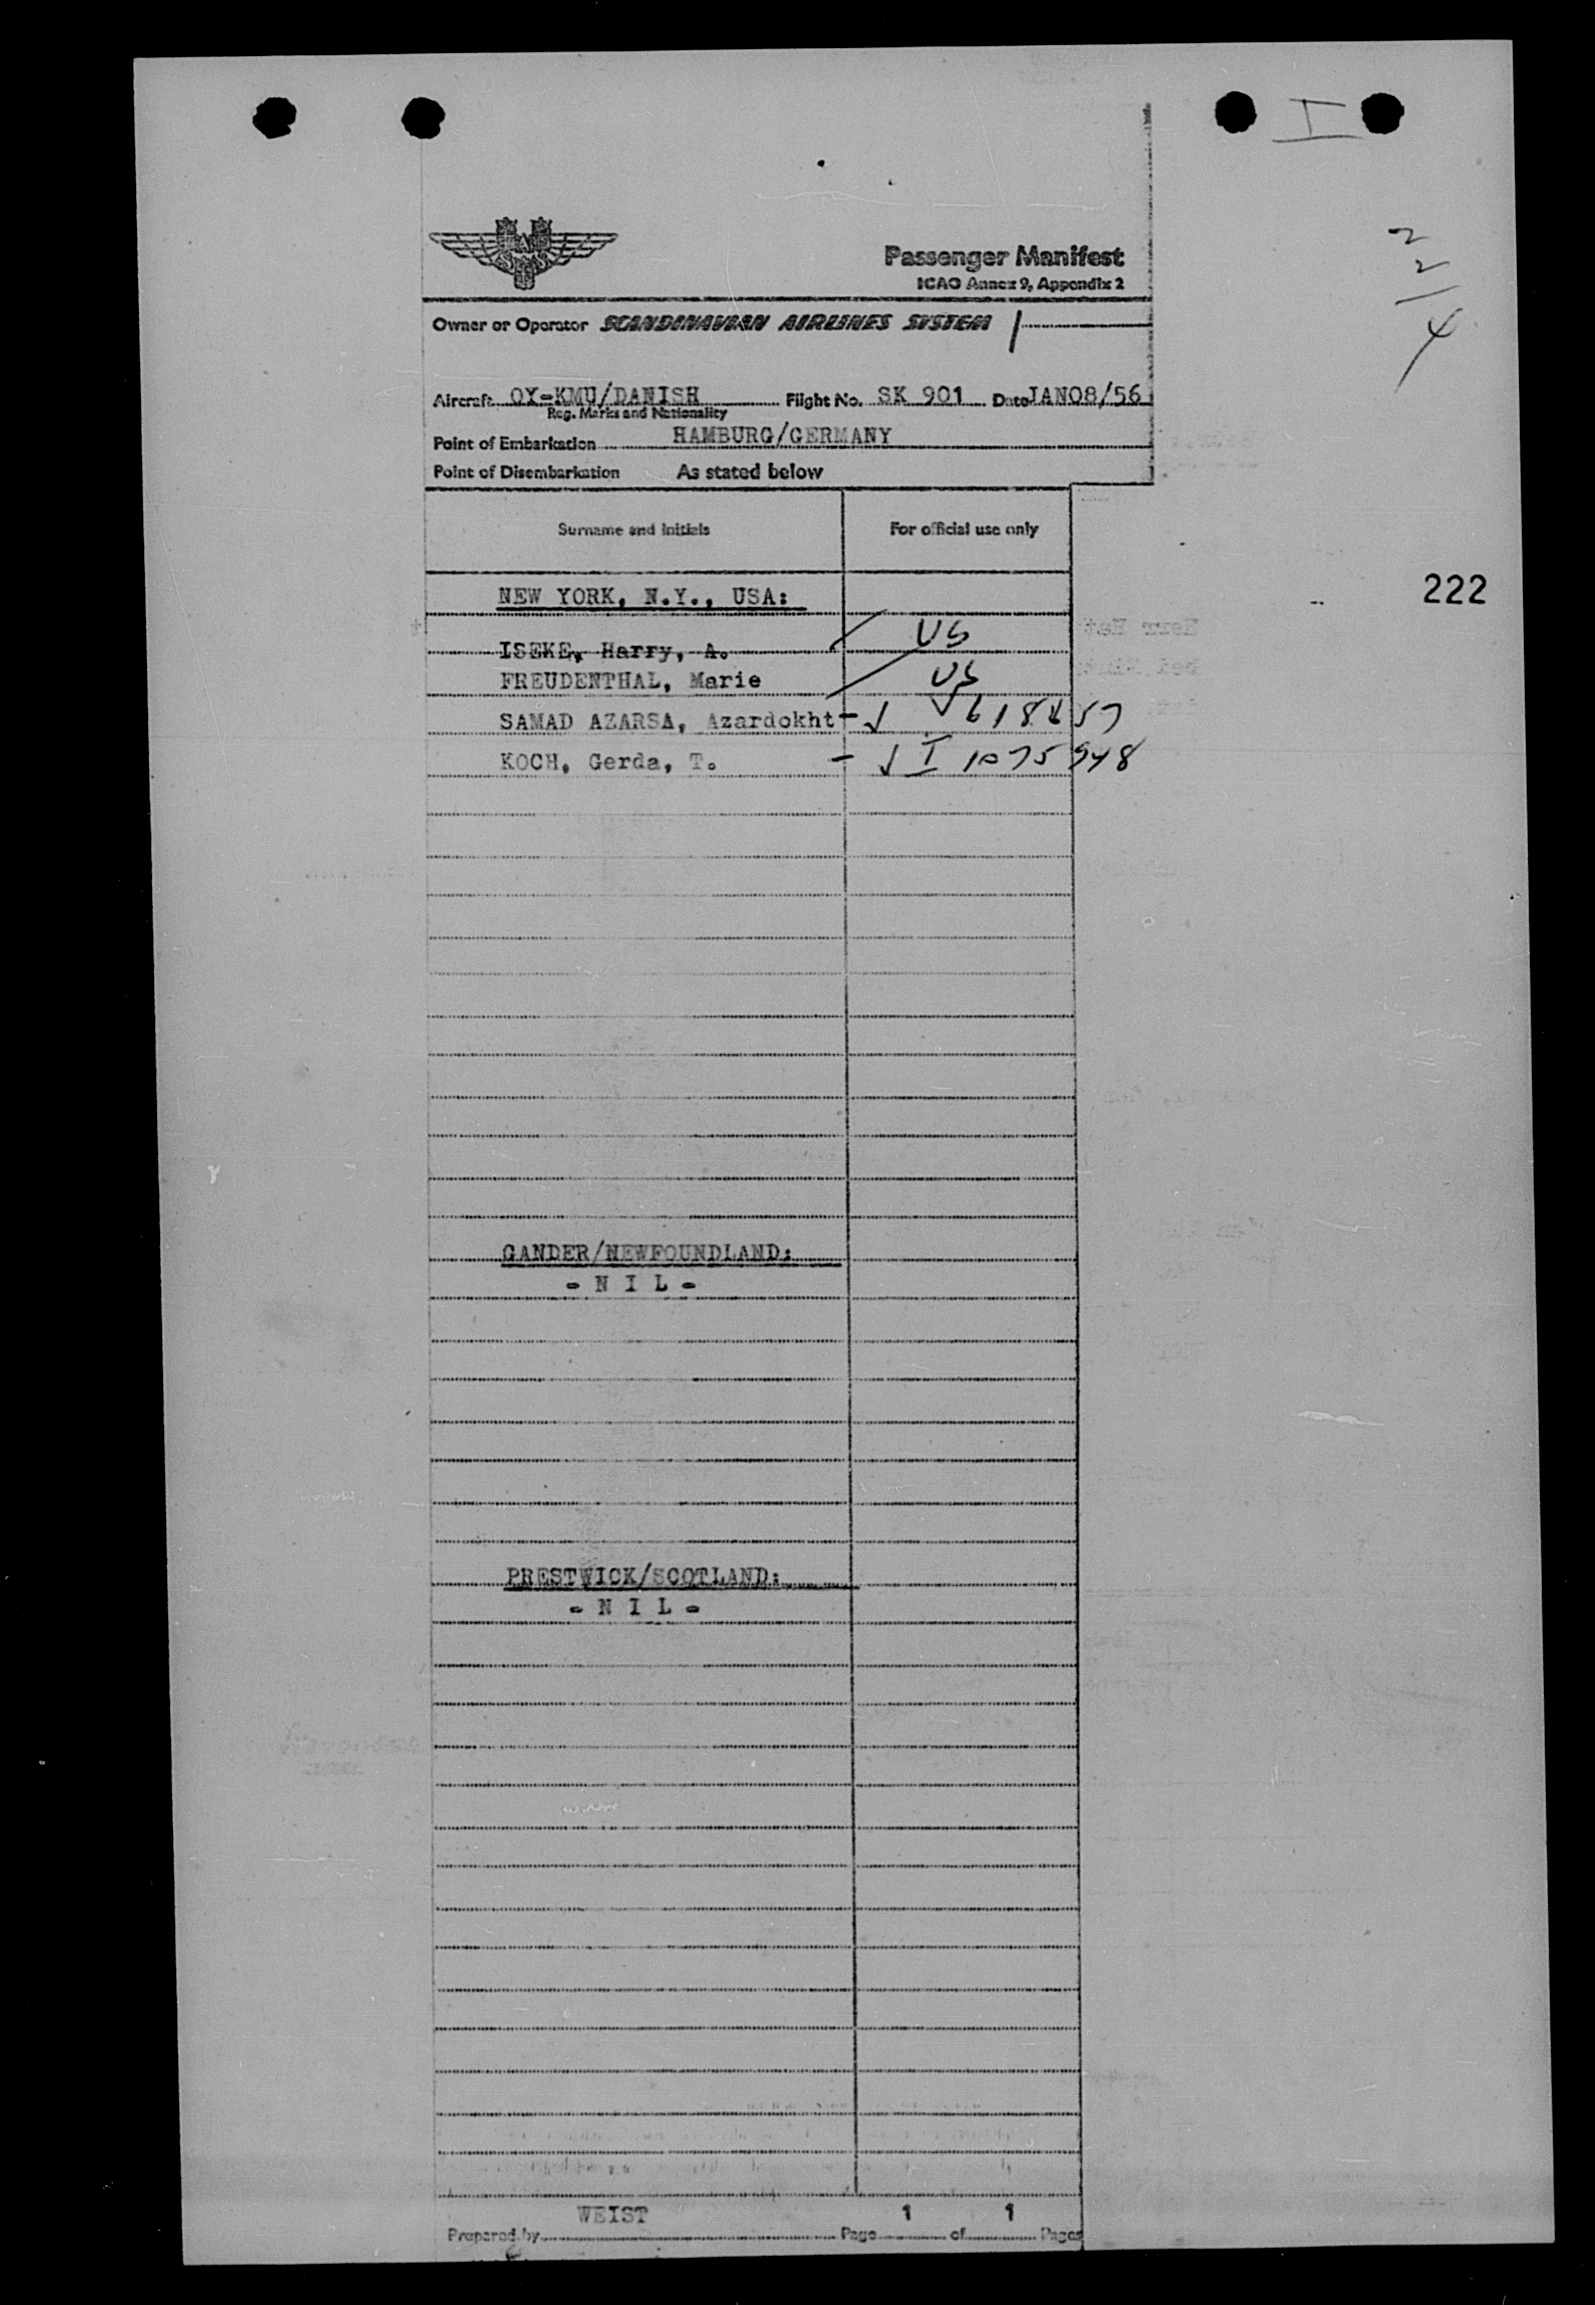 I
2
2
4
SAS
Passenger Manifest
ICAO Annex 9, Appendix 2
Owner or Operator SCANDINAVIAN AIRLINES SYSTEM
Aircraft OY-KMU/DANISH Flight No. SK 901 Date JAN08/56
Reg. Marks and Nationality
Point of Embarkation HAMBURG/GERMANY
Point of Disembarkation As stated below
Surname and initials For official use only
222
NEW YORK, N.Y., USA:
ISEKE, Harry, A. US
FREUDENTHAL, Marie US
SAMAD AZARSA, Azardokht
KOCH, Gerda, T. I 1075948
GANDER/NEWFOUNDLAND:
- N I L -
PRESTWICK/SCOTLAND:
- N I L -
Prepared by WEIST Page 1 of 1 Pages